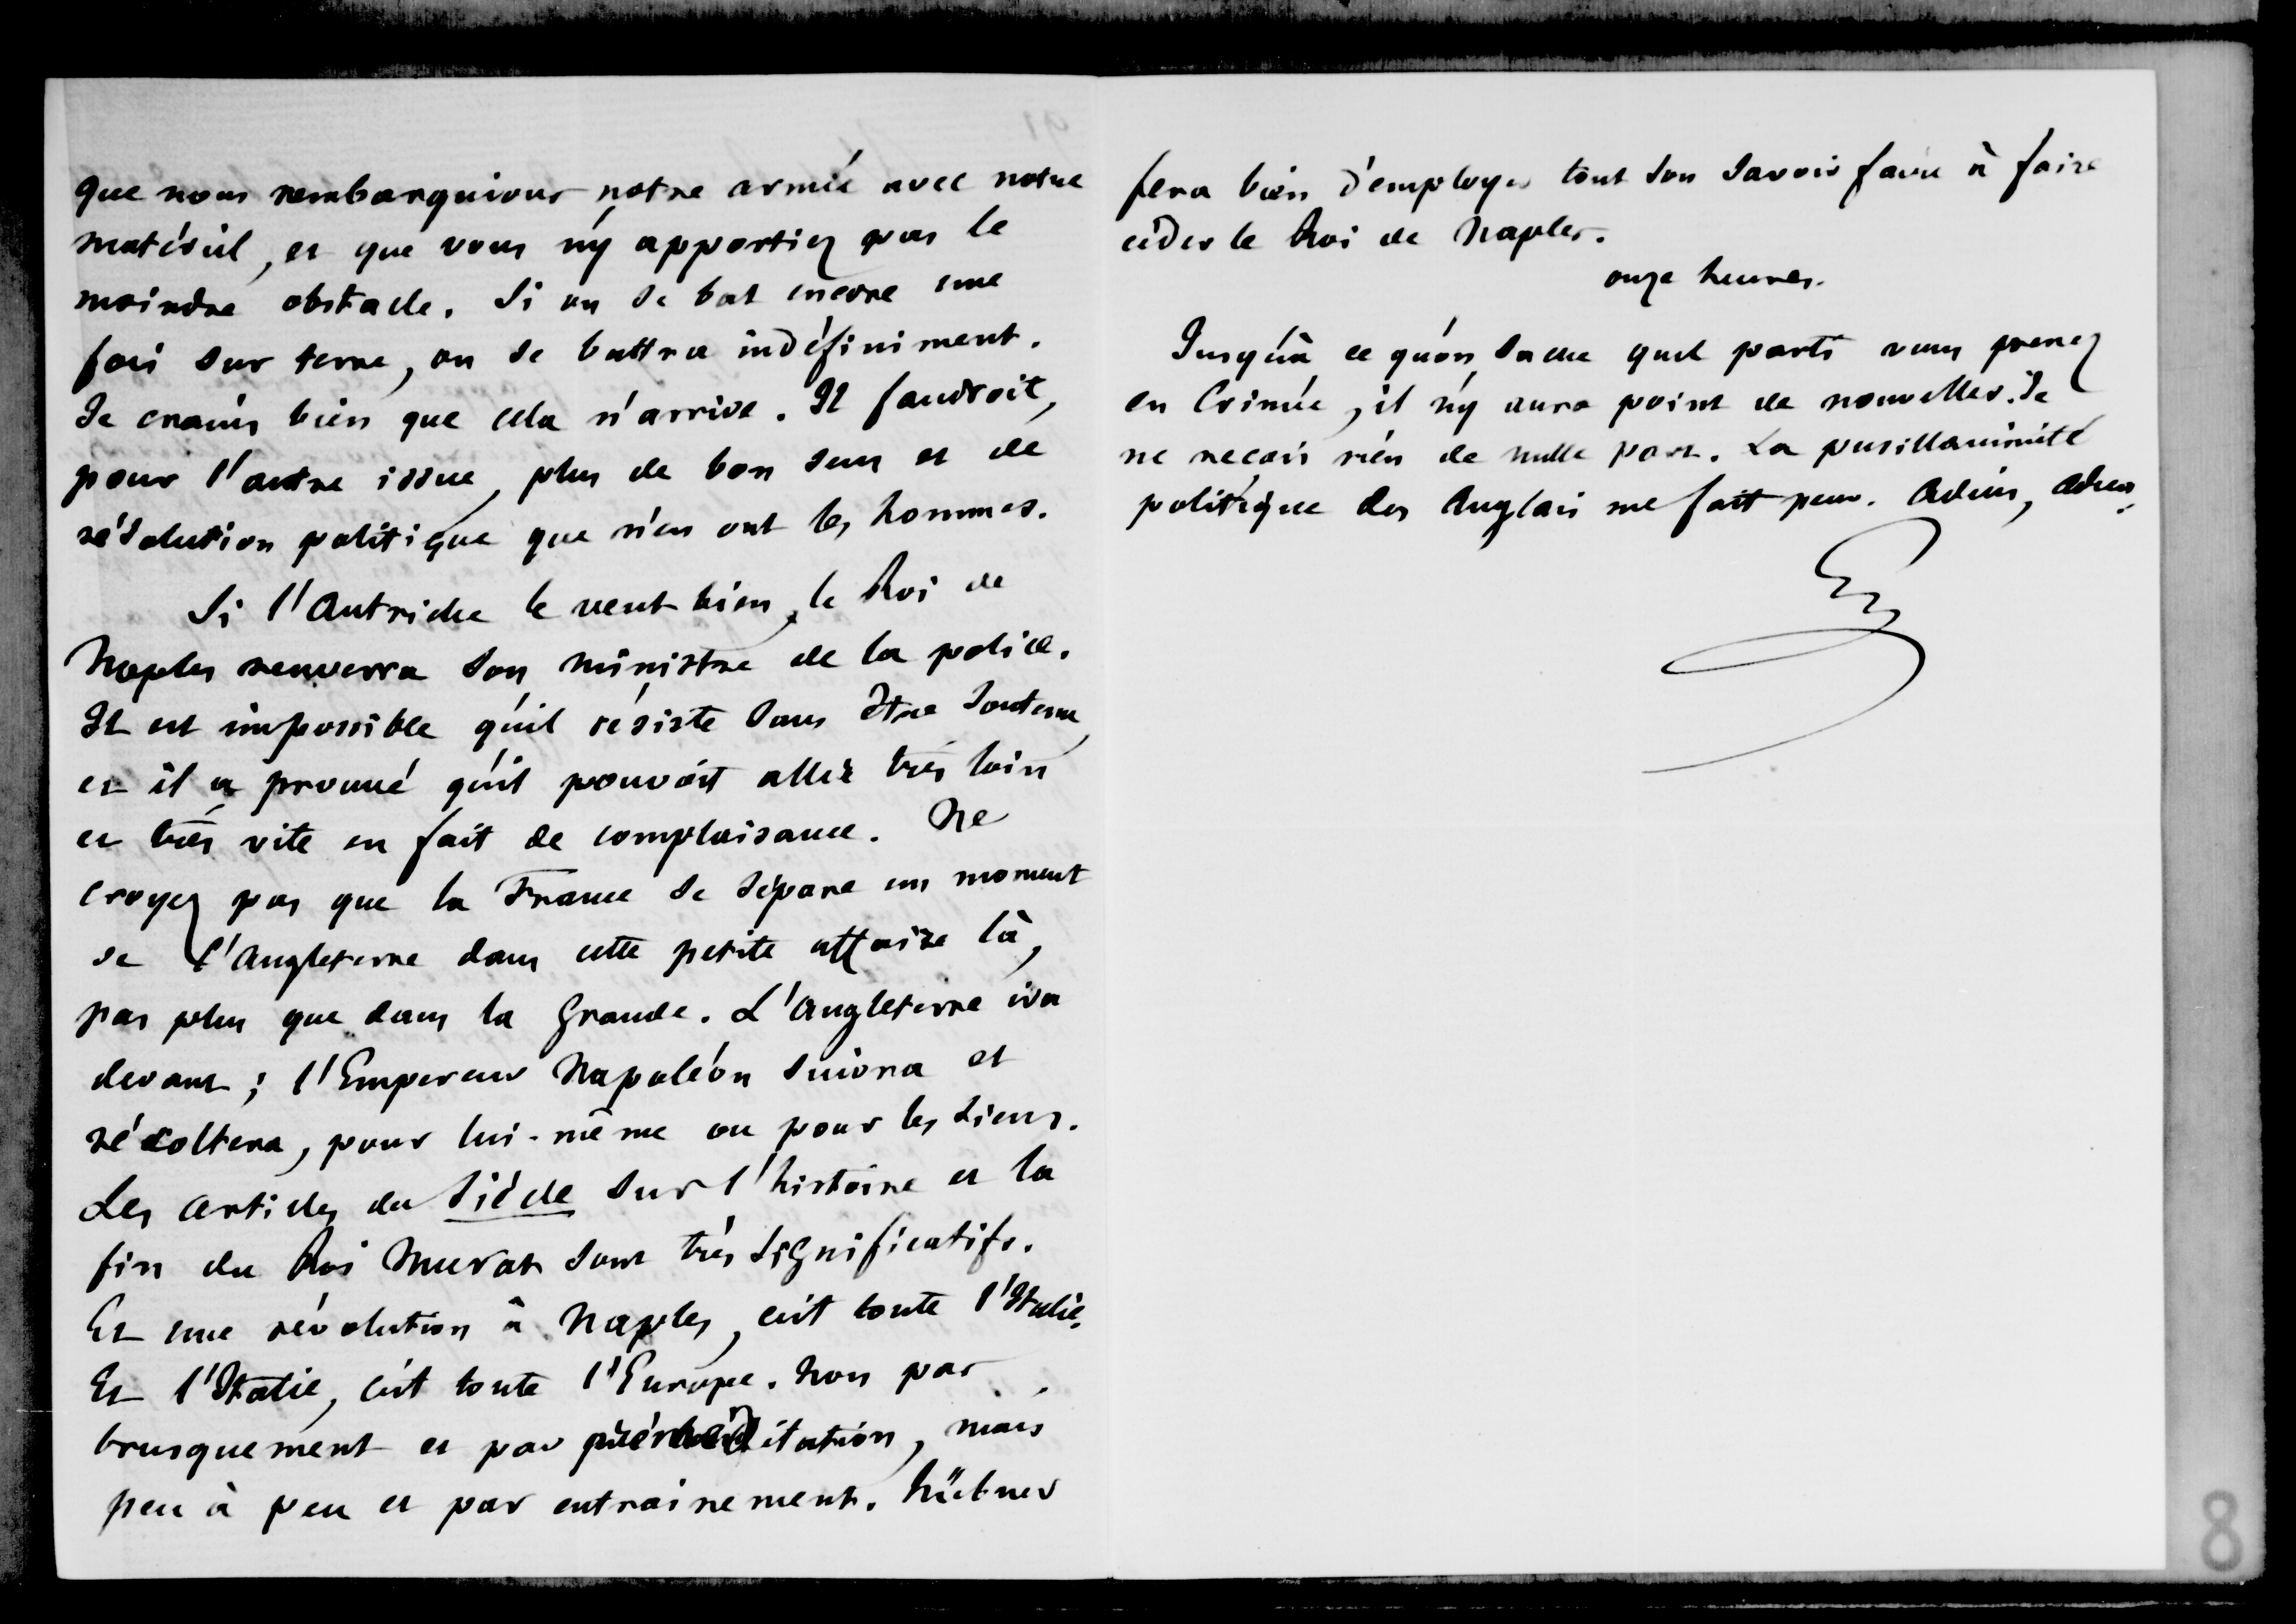 que nous rembarquions notre armée avec notre
matériel, et que vous n'y apportiez pas le
moindre obstacle. Si on se bat encore une
fois sur terre, on se battra indéfiniment.
Je crains bien que cela n'arrive. Il faudroit,
pour l'autre issue, plus de bon sens et de
résolution politique que n'en ont les hommes.
Si l'Autriche le veut bien, le Roi de
Naples renverra son ministre de la police.
Il est impossible qu'il résiste sans être soutenu,
et il a prouvé qu'il pouvoit aller très loin
et très vite en fait de complaisance. Ne
croyez pas que la France se sépare un moment
de l'Angleterre dans cette petite affaire là,
pas plus que dans la grande. L'Angleterre ira
devant ; l'Empereur Napoléon suivra et
récoltera, pour lui-même ou pour les siens.
Les articles du Siècle sur l'histoire et la
fin du Roi Murat sont très significatifs.
Et une révolution à Naples, c'est toute l'Italie.
Et l'Italie, c'est toute l'Europe. Non pas
brusquement et par préméditation, mais
peu à peu et par entrainement. Hübner
fera bien d'employer tout son savoir faire à faire
céder le Roi de Naples.
onze heures.
Jusqu'à ce qu'on sache quel parti vous prenez
en Crimée, il n'y aura point de nouvelles. Je
ne reçois rien de nulle part. La pusillanimité
politique des Anglais me fait peur. Adieu, Adieu.
8